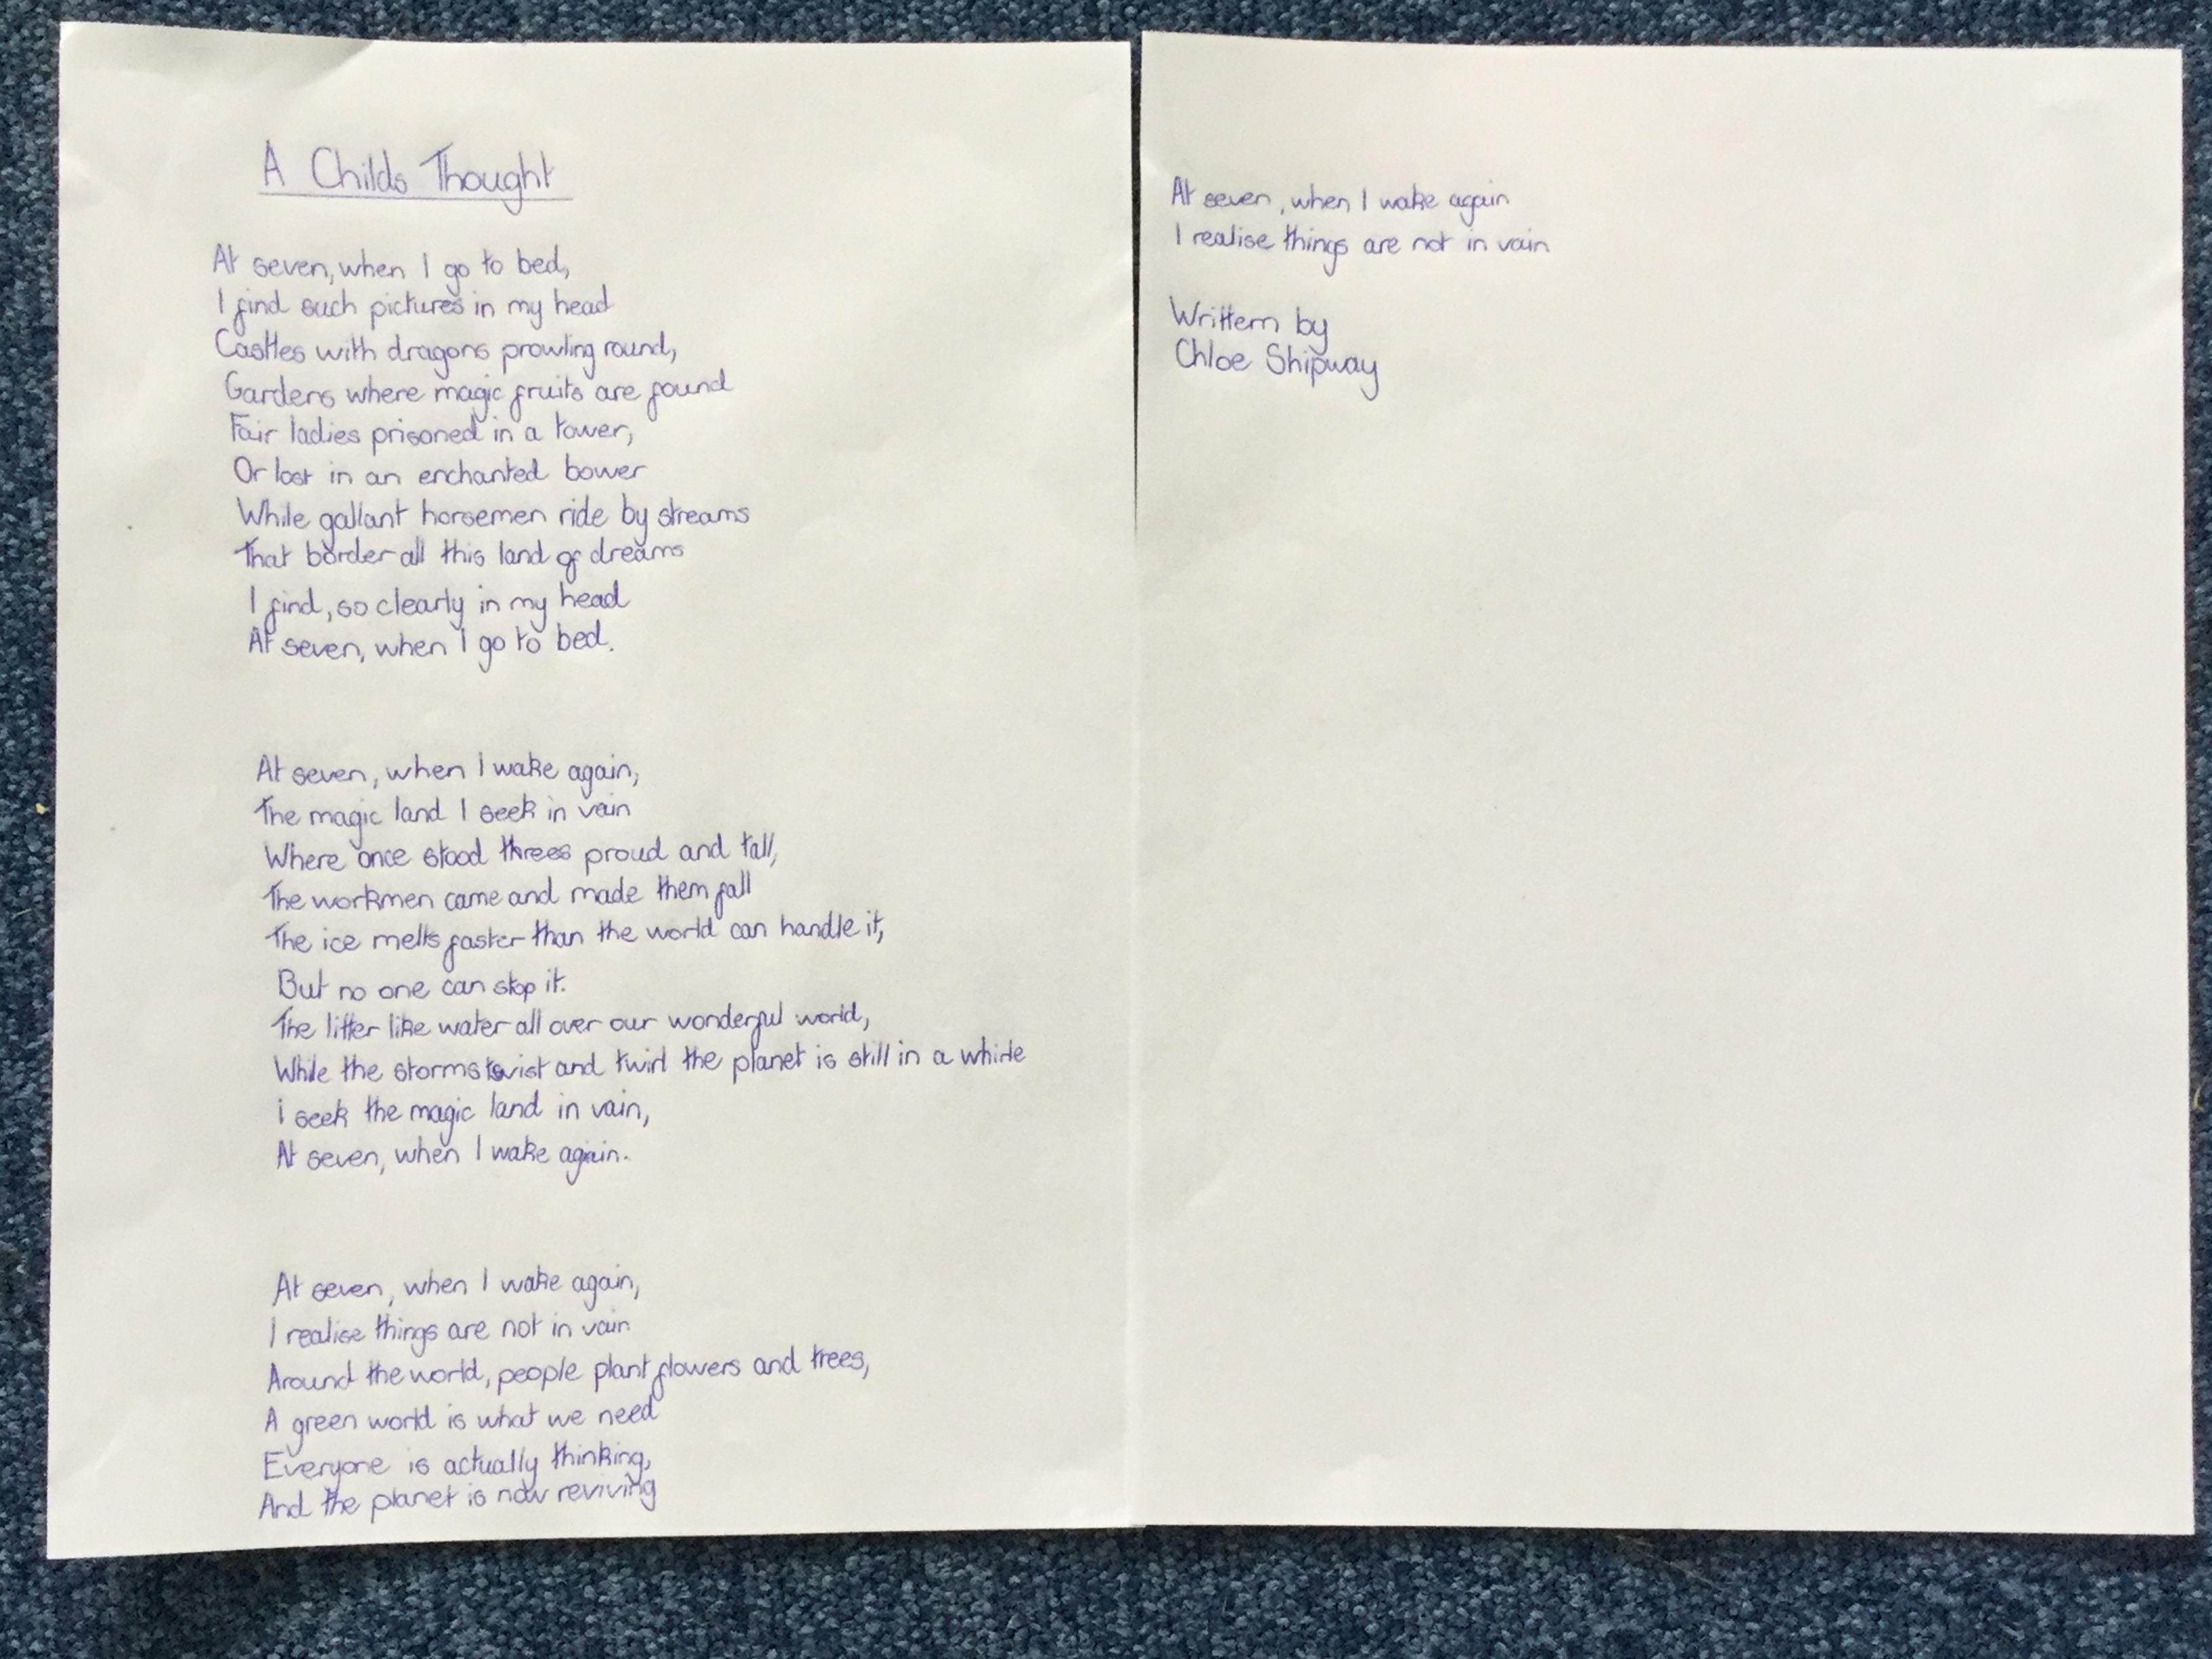 A Childs Thought
At seven, when I go to bed,
I find such pictures in my head
Castles with dragons prowling round,
Gardens where magic fruits are found
Fair ladies prisoned in a tower,
Or lost in an enchanted bower
While gallant horsemen ride by streams
That border all this land of dreams
I find, so clearly in my head
At seven, when I go to bed.
At seven, when I wake again,
The magic land I seek in vain
Where once stood threes proud and tall,
The workmen came and made them fall
The ice melts faster than the world can handle it,
But no one can stop it.
The litter like water all over our wonderful world,
While the storms twist and twirl the planet is still in a whirle
i seek the magic land in vain,
At seven, when I wake again.
At seven, when I wake again,
I realise things are not in vain
Around the world, people plant flowers and trees,
A green world is what we need
Everyone is actually thinking,
And the planet is now reviving
At seven, when I wake again
I realise things are not in vain
Writtem by
Chloe Shipway